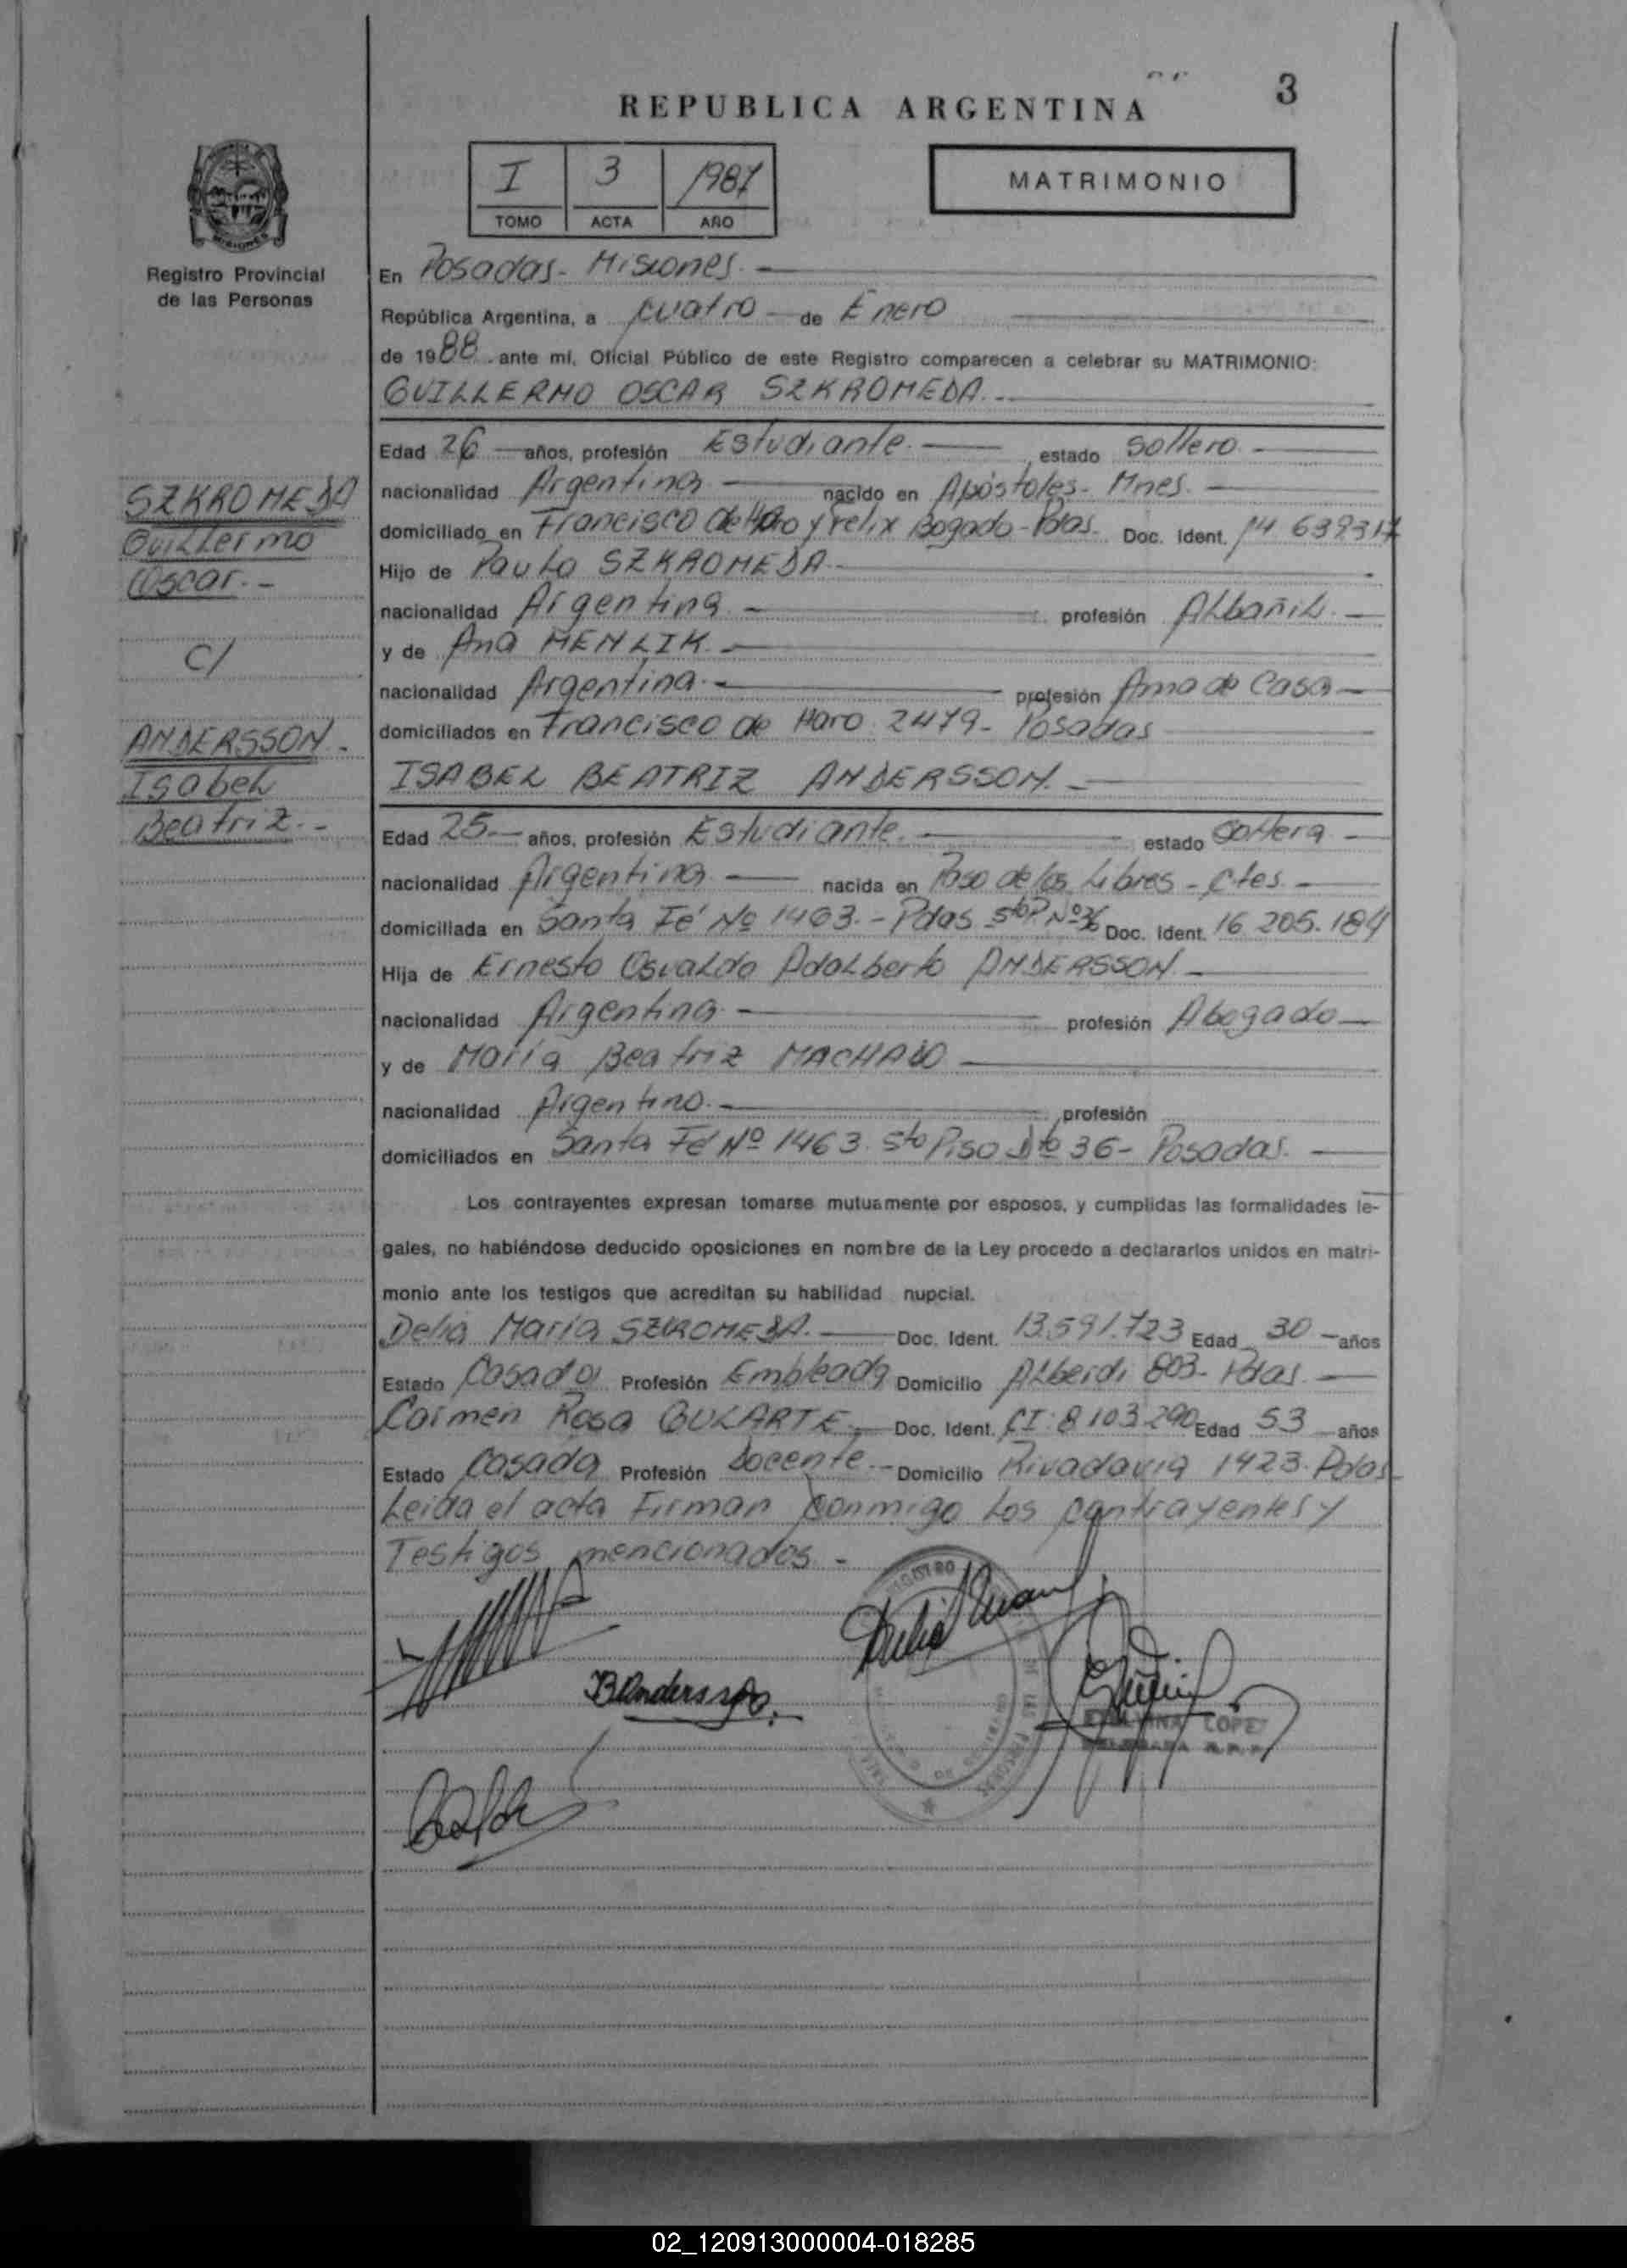 3
REPUBLICA ARGENTINA
I 3 1987
TOMO ACTA AÑO
MATRIMONIO
MISIONES
Registro Provincial
de las Personas
En Posadas - Misiones. -
República Argentina, a cuatro - de Enero
de 1988 . ante mí, Oficial Público de este Registro comparecen a celebrar su MATRIMONIO:
GUILLERMO OSCAR SZKROMEDA. -
Edad 26 - años, profesión Estudiante. - estado Soltero. -
nacionalidad Argentina - nacido en Apóstoles - Mnes. -
domiciliado en Francisco de Haro y Felix Bogado - Pdas. Doc. Ident. 14 639317
Hijo de Paulo SZKROMEDA -
nacionalidad Argentina. - profesión Albañil. -
y de Ana MENLIK. -
nacionalidad Argentina. - profesión Ama de Casa -
domiciliados en Francisco de Haro 2479 - Posadas
ISABEL BEATRIZ ANDERSSON. -
Edad 25 - años, profesión Estudiante. - estado Soltera -
nacionalidad Argentina - nacida en Paso de los Libres - Ctes. -
domiciliada en Santa Fé Nº 1463. - Pdas 5toP Nº36 Doc. Ident. 16 205.184
Hija de Ernesto Osvaldo Adalberto ANDERSSON -
nacionalidad Argentina - profesión Abogado -
y de María Beatriz MACHADO -
nacionalidad Argentino. - profesión
domiciliados en Santa Fé Nº 1463 5to Piso Dto 36 - Posadas. -
Los contrayentes expresan tomarse mutuamente por esposos, y cumplidas las formalidades le-
gales, no habiéndose deducido oposiciones en nombre de la Ley procedo a declararlos unidos en matri-
monio ante los testigos que acreditan su habilidad nupcial.
Delia María SZKROMEDA. - Doc. Ident. 13.591.723 Edad 30 - años
Estado Casada Profesión Empleada Domicilio Alberdi 803 - Pdas. -
Carmen Rosa GULARTE - Doc. Ident. CI: 8 103 290 Edad 53 años
Estado Casada Profesión Docente - Domicilio Rivadavia 1423. Pdas -
Leida el acta Firman conmigo los contrayentes y
Testigos mencionados. -
SZKROMEDA
Guillermo
Oscar. -
C/
ANDERSSON. -
Isabel
Beatriz. -
BAndersson.
REGISTRO
LOPEZ
02_120913000004-018285